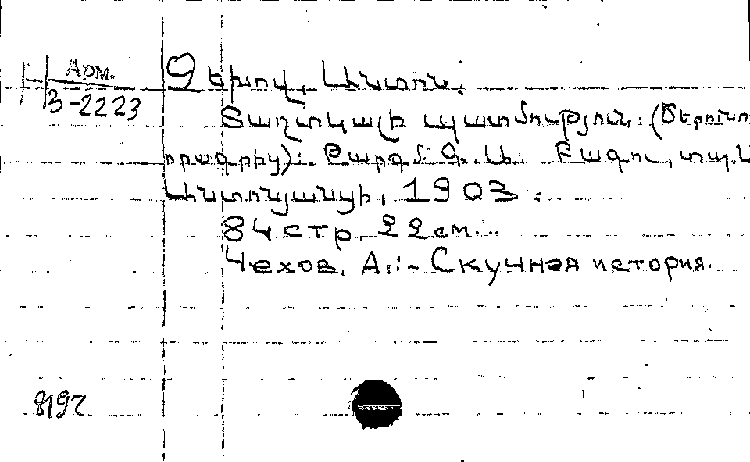 Арм.
3-2223
Չեխով, Անտոն.
Տաղտկալի պատմություն: (Ծերունու
որագրից): Թարգմ. Գ. Ա. Բագու, տպ. Ն
Անտոնյանցի, 1903.
84 стр. 22 см.
Чехов, А.:- Скучная история.
8197